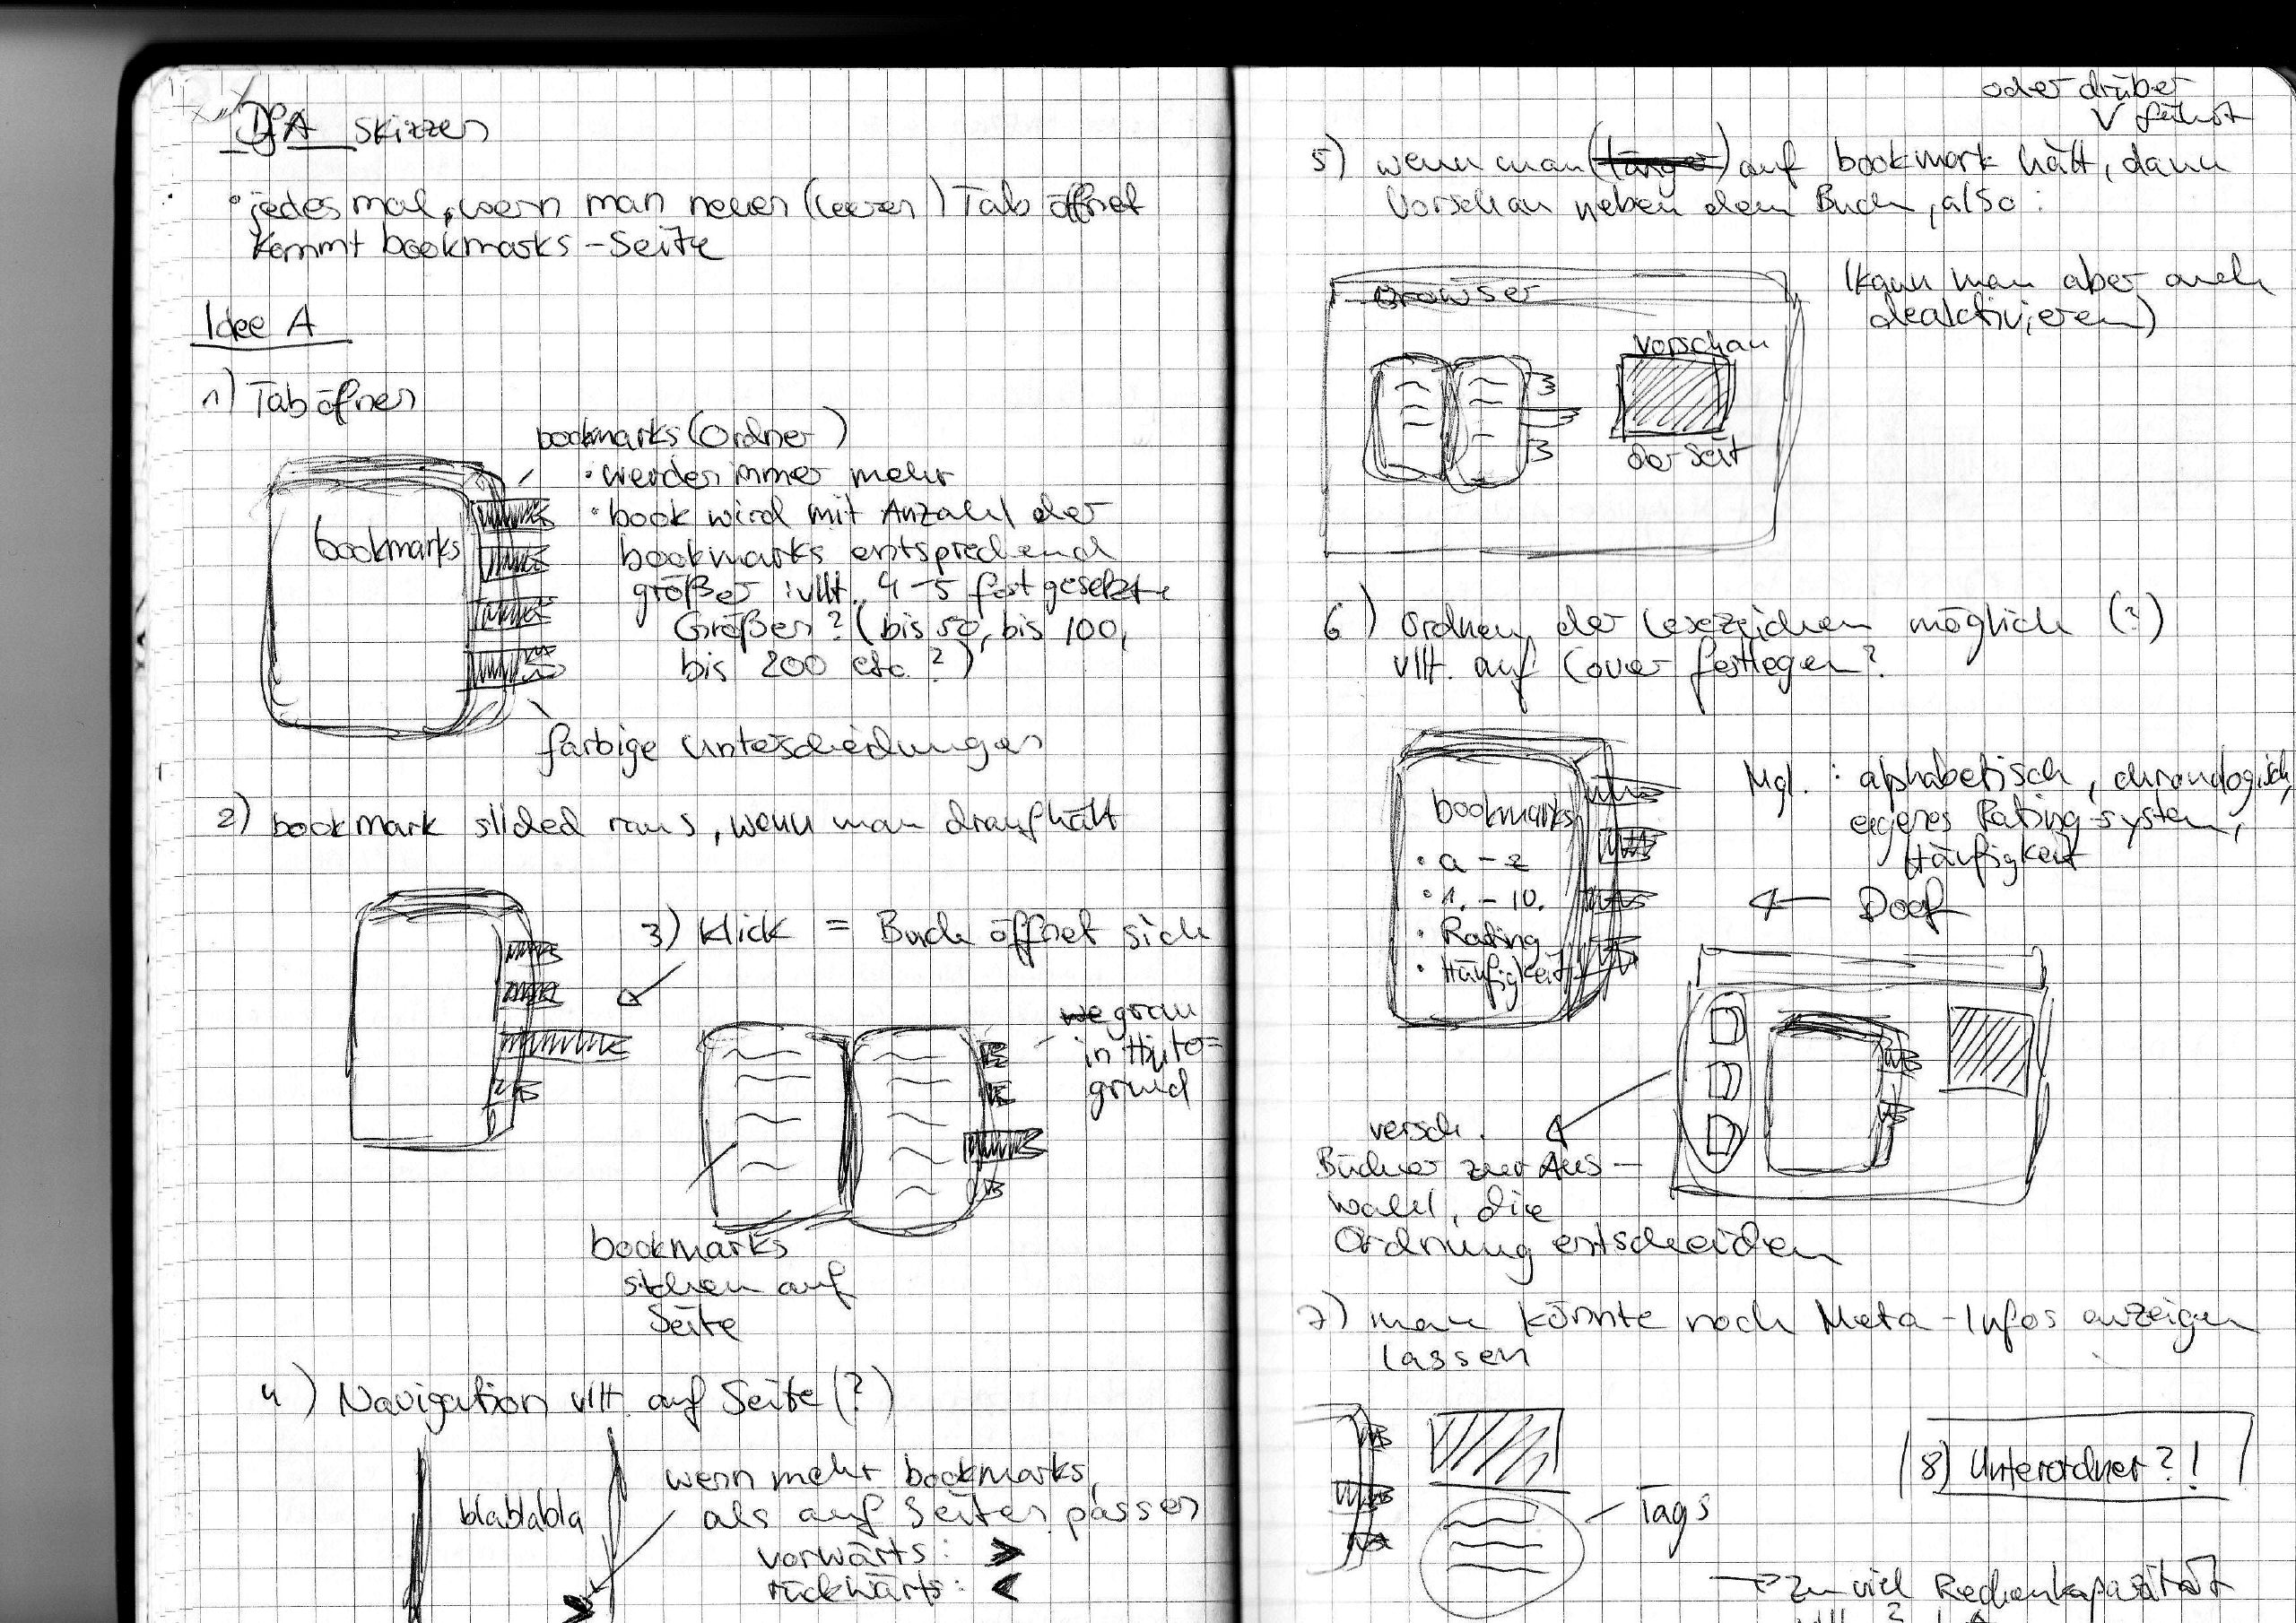 DfA Skizzen
• jedes mal, wenn man neuen (leeren) Tab öffnet
kommt bookmarks-Seite
Idee A
1) Tab öffnen
bookmarks (Ordner)
• werden immer mehr
• book wird mit Anzahl der
bookmarks entsprechend
größer : vllt. 4-5 festgesetzte
Größen? (bis 50, bis 100,
bis 200 etc.?)
bookmarks
farbige Unterscheidungen
2) bookmark slided raus, wenn man draufhält
3) Klick = Buch öffnet sich
grau
in Hinter-
grund
bookmarks
stehen auf
Seite
4) Navigation vllt. auf Seite (?)
blablabla
wenn mehr bookmarks,
als auf Seiten passen
vorwärts: >
rückwärts: <
oder drüber
fährt
5) wenn man (länger) auf bookmark hält, dann
Vorschau neben dem Buch, also:
(kann man aber auch
deaktivieren)
Browser
Vorschau
der Seit
6) Ordnen der Lesezeichen möglich (?)
vllt. auf Cover festlegen?
bookmarks
• a - z
• 1. - 10.
• Rating
• Häufigkeit
Mgl.: alphabetisch, chronologisch,
eigenes Rating-system,
Häufigkeit
← Doof
versch.
Bücher zur Aus-
wahl, die
Ordnung entscheiden
7) man könnte noch Meta-Infos anzeigen
lassen
Tags
8) Unterordner?!
→ zu viel Rechenkapazität